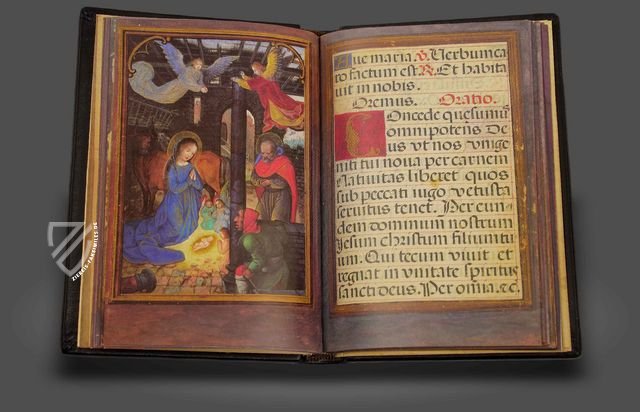 Aue maria. V. Verbum ca
ro factum est. R. Et habita
uit in nobis.
Oremus. Oratio.
Concede quesumus
omnipotens De
us vt nos vnige
niti tui noua per carnem
Natiuitas liberet quos
sub peccati iugo vetusta
seruitus tenet. Per eun
dem dominum nostrum
Jesum christum filium tu
um. Qui tecum viuit et
regnat in vnitate spiritus
sancti deus. Per omia. ec.
ZIEREIS-FAKSIMILES.DE